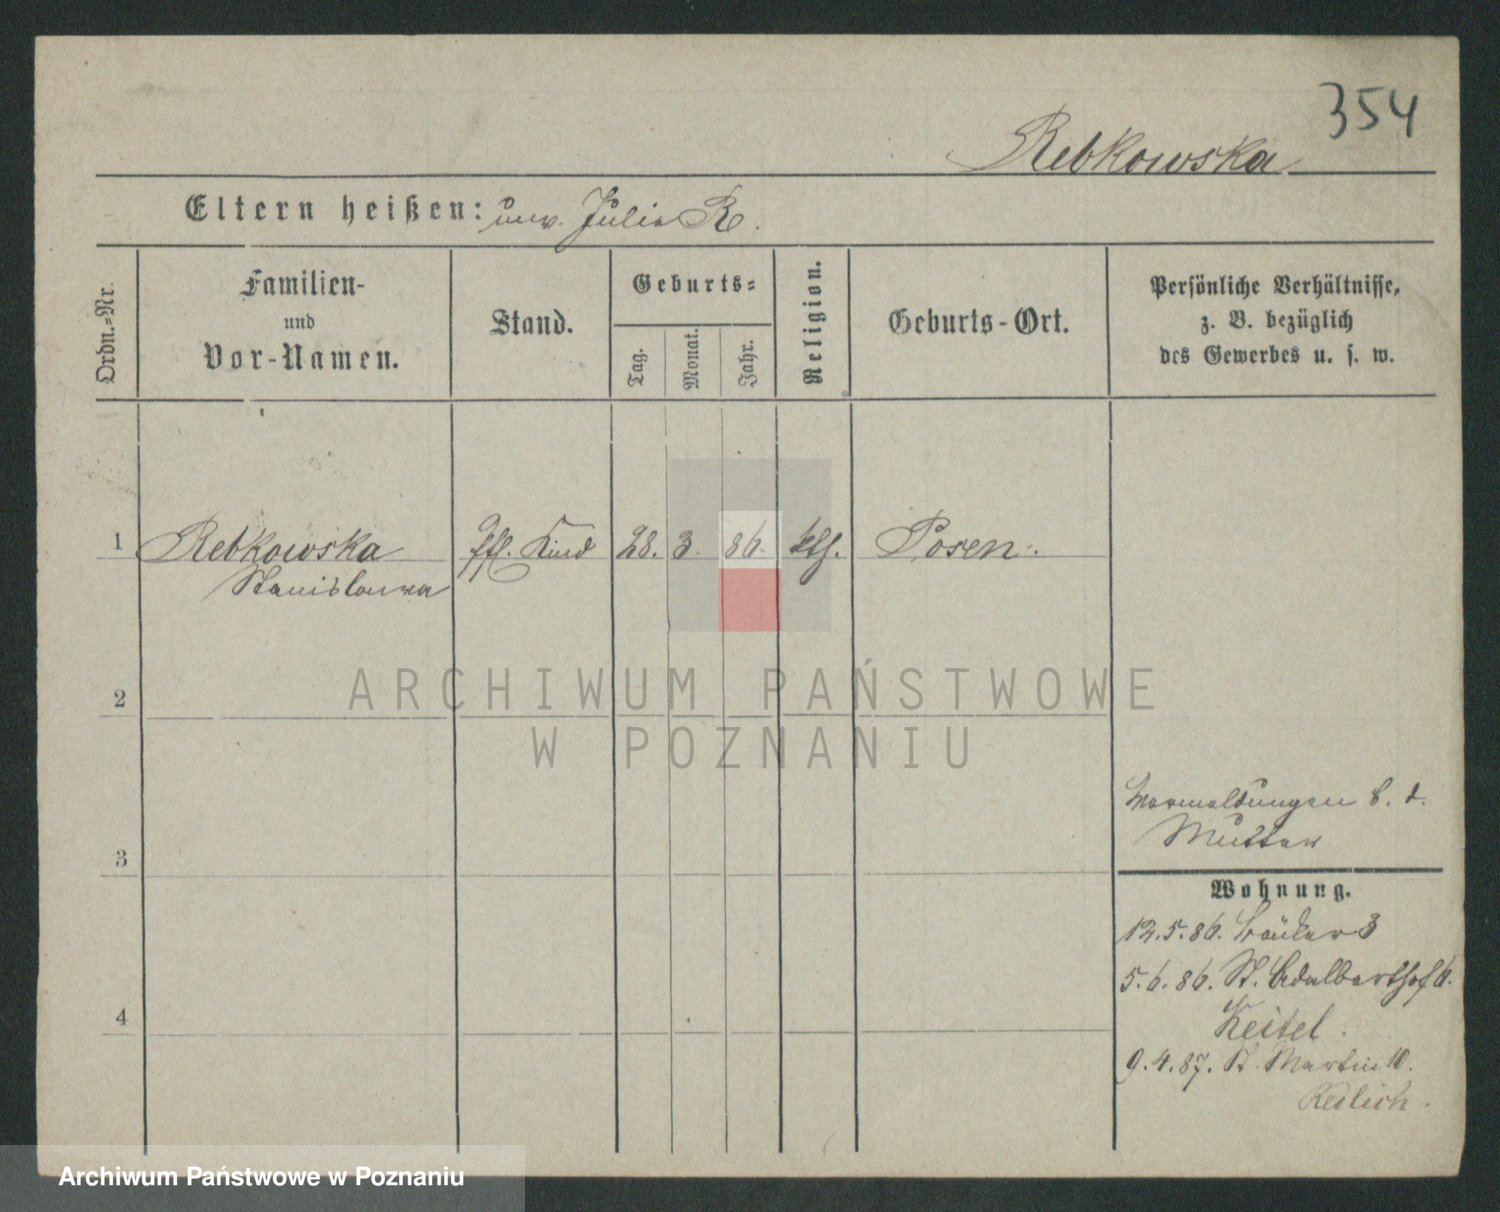 354
Rebkowska
Eltern heißen: unv. Julie R.
Ordn.-Nr.
Familien-
und
Vor-Namen.
Stand.
Geburts-
Tag.
Monat.
Jahr.
Religion.
Geburts-Ort.
Persönliche Verhältnisse,
z. B. bezüglich
des Gewerbes u. s. w.
1 Rebkowska Kind 28. 3. 86. kth. Posen.
Stanislawa
2
ARCHIWUM PAŃSTWOWE
W POZNANIU
3
4
Vermeldungen b. d.
Mutter
Wohnung.
12.5.86. Bäcker 3
5.6.86. St. Adalberthof 6.
Keitel.
9.4.87. St. Martin 10.
Redlich.
Archiwum Państwowe w Poznaniu